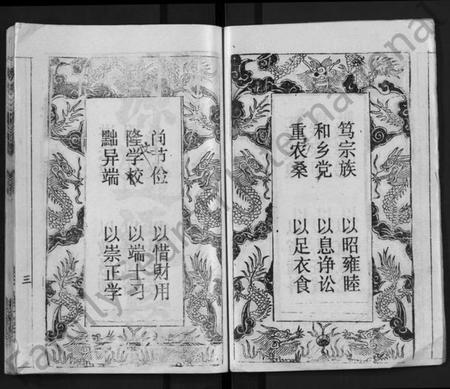 笃宗族 以昭雍睦
和乡党 以息诤讼
重农桑 以足衣食
尚节俭 以惜财用
隆学校 以端士习
黜异端 以崇正学
三